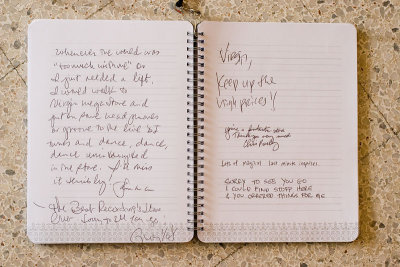 whenever the world was
"too much with me" or
I just needed a lift,
I would walk to
Virgin megastore and
put on some headphones
or groove to the live DJ
tunes and dance, dance,
dance uninterrupted
in the store. I'll miss
it terribly!
The Best Recordings Store
Ever. Sorry to see you go!
Virgin,
Keep up the
high prices!!
Thank you very much
Lots of magical last minute inspires
SORRY TO SEE YOU GO
I COULD FIND STUFF HERE
& YOU ORDERED THINGS FOR ME